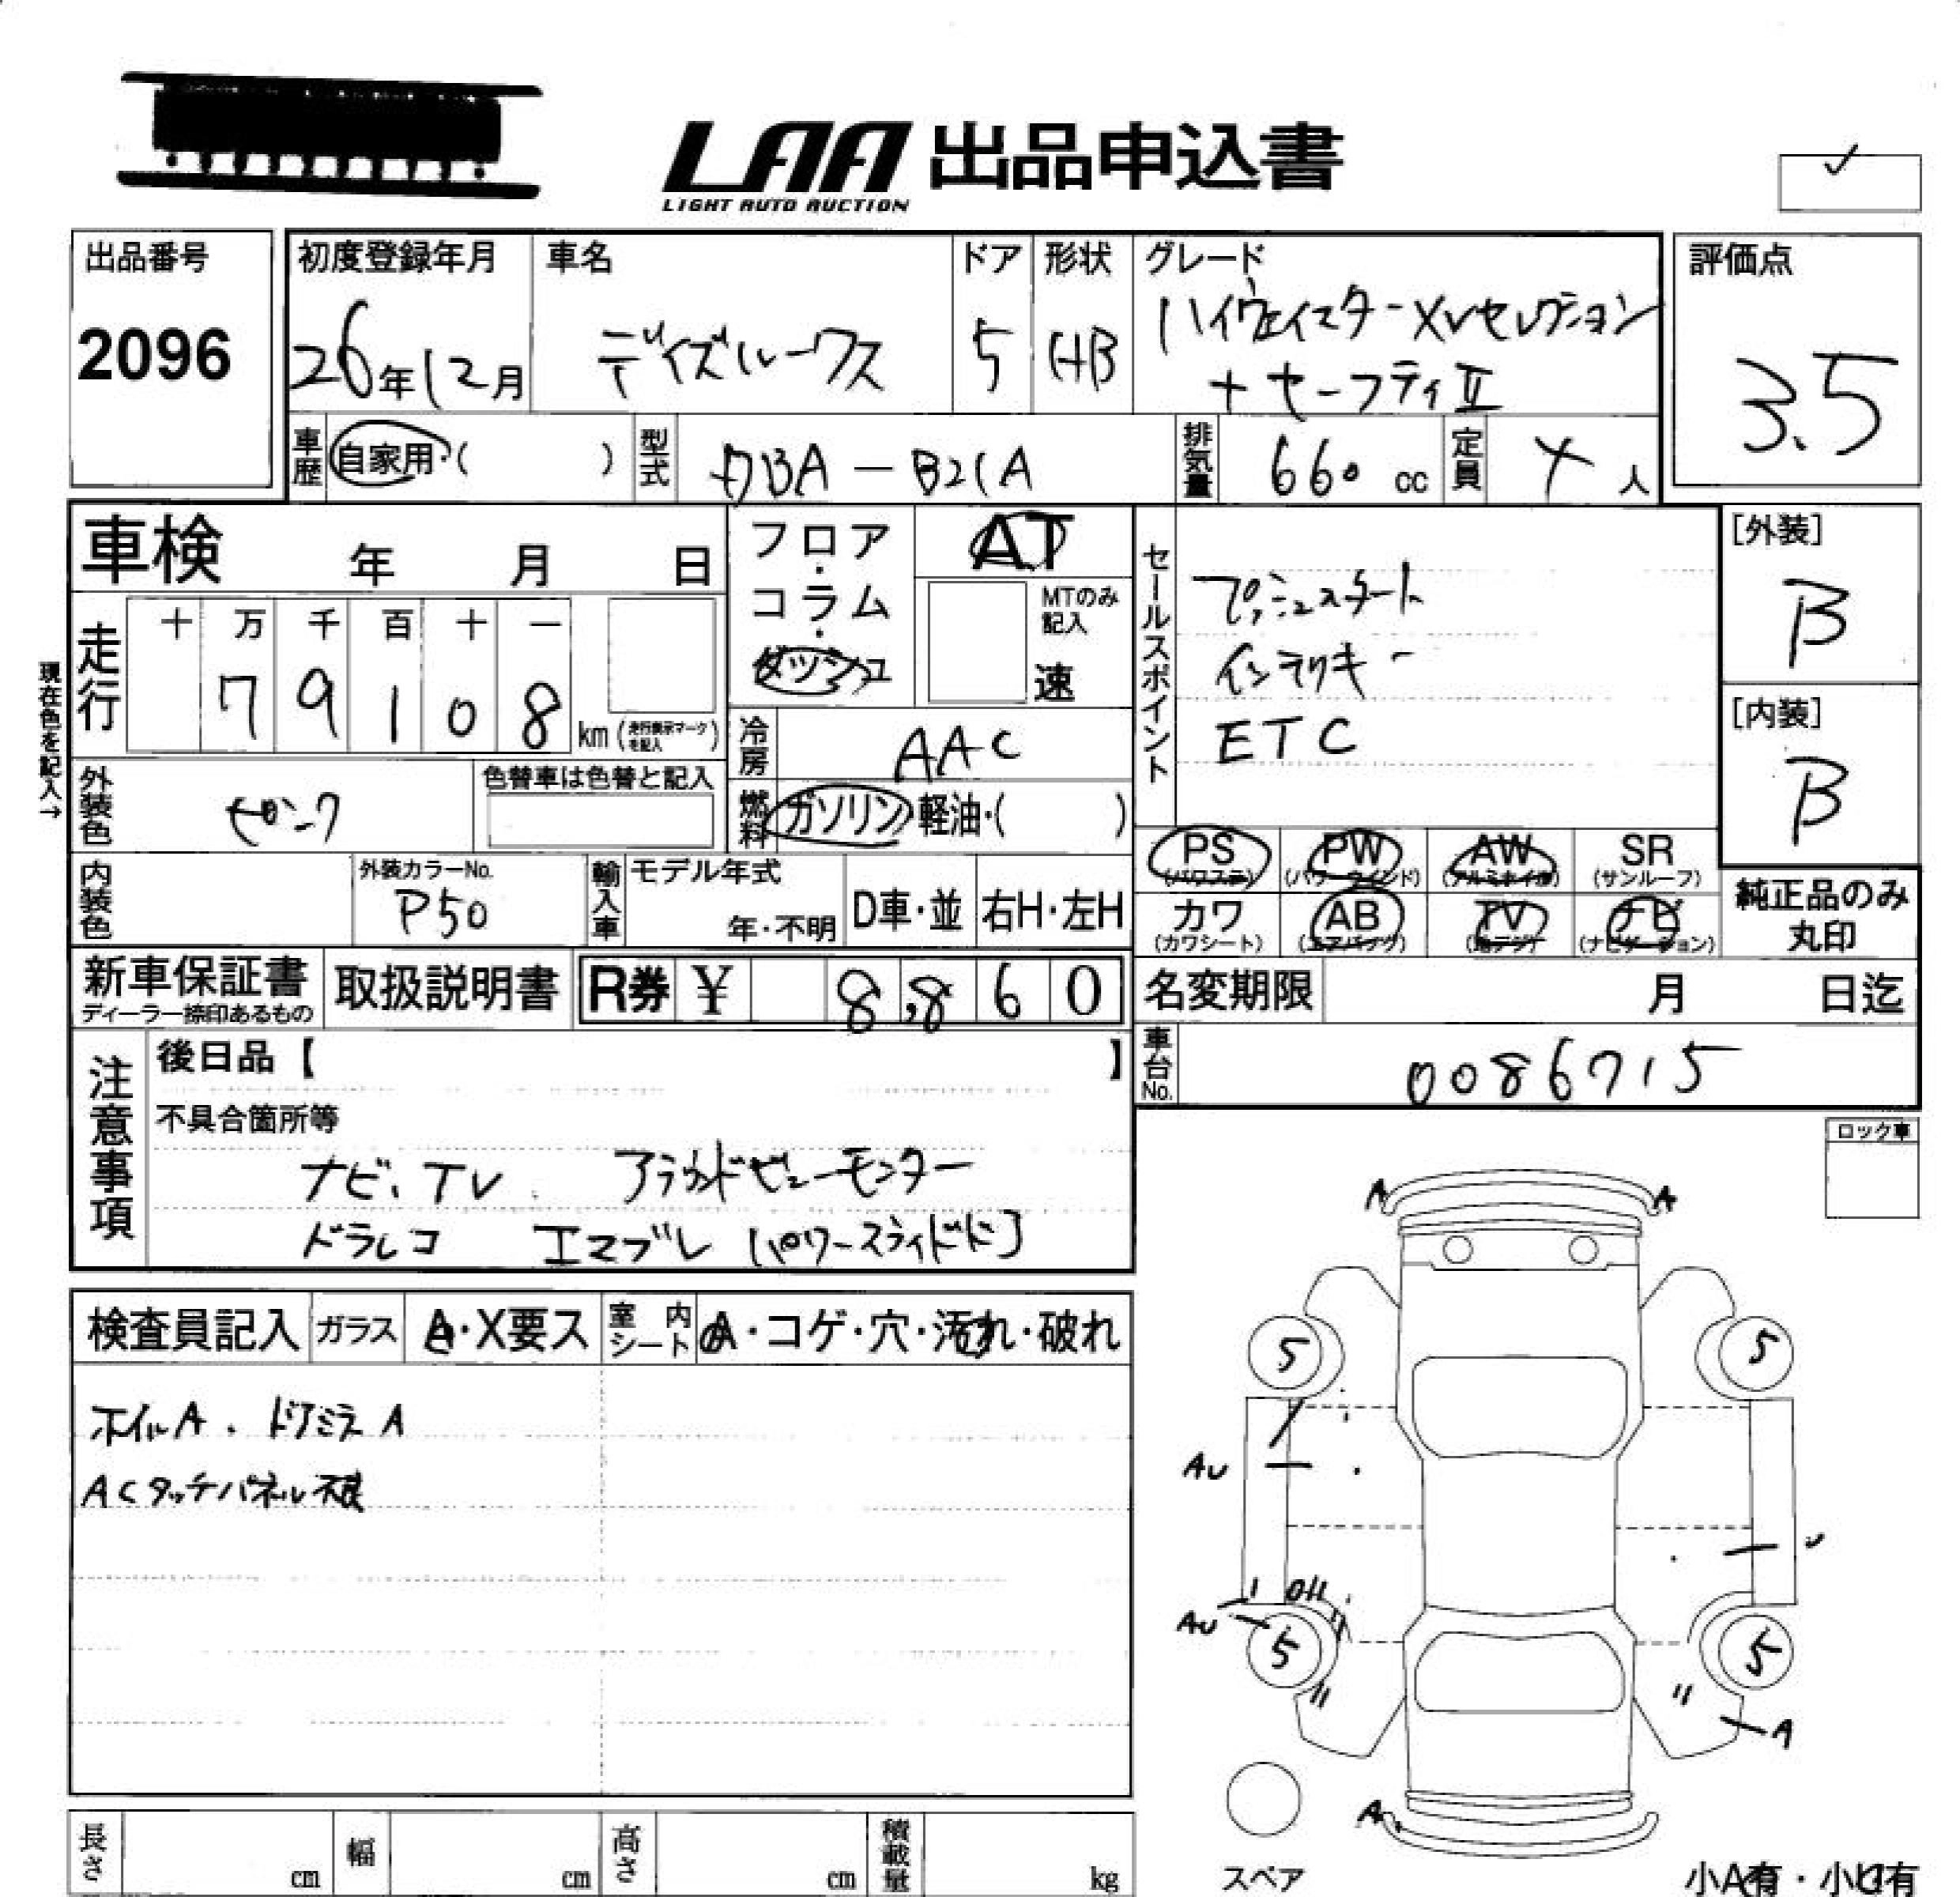 LAA 出品申込書
LIGHT AUTO AUCTION
✓
出品番号
2096
初度登録年月
26年12月
車名
デイズルークス
ドア
5
形状
HB
グレード
ハイウェイスターXVセレクション
+セーフティⅡ
評価点
3.5
車歴
自家用・( )
型式
DBA-B21A
排気量
660 cc
定員
4 人
車検 年 月 日
フロア・コラム・ダッシュ
AT
MTのみ記入
速
セールスポイント
プッシュスタート
インテリキー
ETC
[外装]
B
[内装]
B
現在色を記入→
走行
十 万 千 百 十 一
7 9 1 0 8
km (走行表示マークを記入)
冷房
AAC
燃料
ガソリン・軽油・( )
外装色
ピンク
色替車は色替と記入
内装色
外装カラーNo.
P50
輸入車
モデル年式
年・不明
D車・並
右H・左H
PS
(パワステ)
PW
(パワーウインド)
AW
(アルミホイル)
SR
(サンルーフ)
カワ
(カワシート)
AB
(エアバック)
TV
(地デジ)
ナビ
(ナビゲーション)
純正品のみ
丸印
新車保証書
ディーラー捺印あるもの
取扱説明書
R券 ¥ 8,860
名変期限 月 日迄
車台No.
0086715
注意事項
後日品【 】
不具合箇所等
ナビ、TV アラウンドビューモニター
ドラレコ エマブレ [パワースライドドア]
ロック車
検査員記入
ガラス
A・X要ス
室内シート
A・コゲ・穴・汚れ・破れ
ホイルA. ドアミラA
ACタッチパネル不良
A A
5 5
AU
U
AU
5 5
A
A
スペア
小A有・小U有
長さ cm
幅 cm
高さ cm
積載量 kg